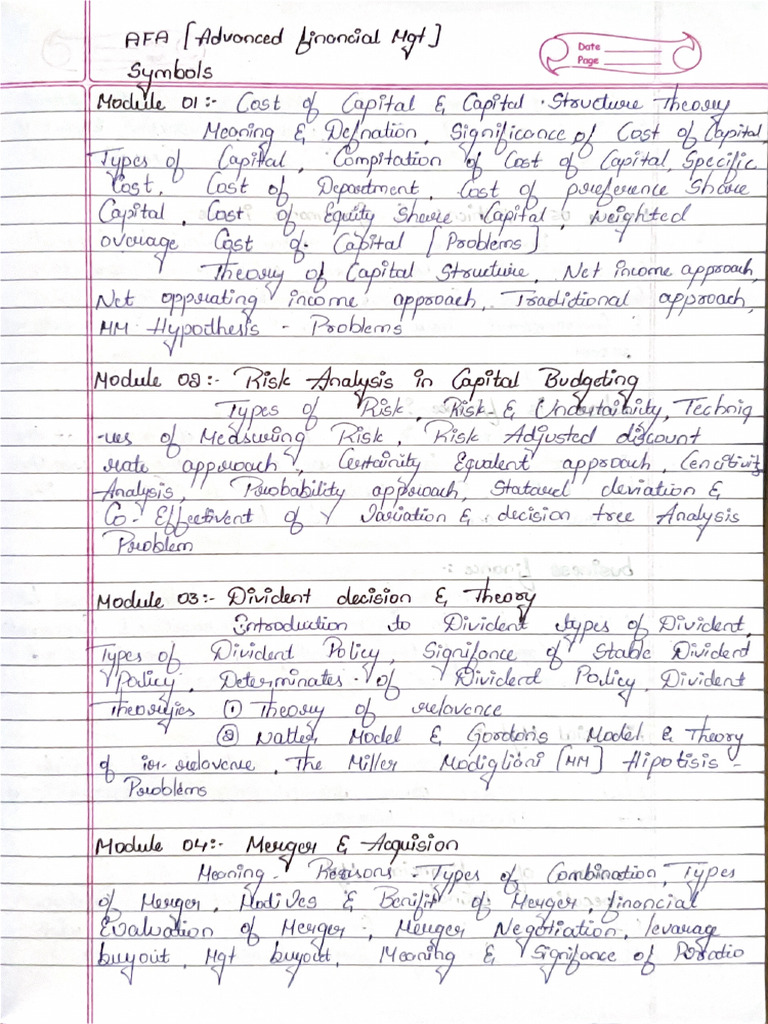 AFA [Advanced financial Mgt]
Symbols
Date
Page
Module 01:- Cost of Capital & Capital Structure Theory
Meaning & Defnation, Significance of Cost of Capital,
Types of Capital, Compitation of Cost of Capital, Specific
Cost, Cost of Department, Cost of preference Share
Capital, Cost of Equity Share Capital, Weighted
average Cost of Capital [Problems]
Theory of Capital Structure, Net income approach,
Net opperating income approach, Traditional approach,
MM Hypothesis - Problems
Module 02:- Risk Analysis in Capital Budgeting
Types of Risk, Risk & Undertainity, Techniq
-ues of Measuring Risk, Risk Adjusted discount
rate approach, Certainity Equalent approach, Cencitivity
Analysis, Probability approach, Statared deviation &
Co-Effectivent of Variation & decision tree Analysis
Problem
Module 03:- Divident decision & Theory
Introduction to Divident types of Divident,
Types of Divident Policy, Signifonce of Stable Divident
Policy, Determinates of Divident Policy, Divident
Theories ① Theory of relavence
② Walter Model & Gordons Model & Theory
of irr-relavence, The Miller Modiglioni [MM] Hipotisis -
Problems
Module 04:- Merger & Acquision
Meaning - Reasons - Types of Combination, Types
of Merger, Motives & Benifit of Merger, financial
Evaluation of Merger, Merger Negotiation, levarage
buyout, Mgt buyout, Meaning & Signifonce of